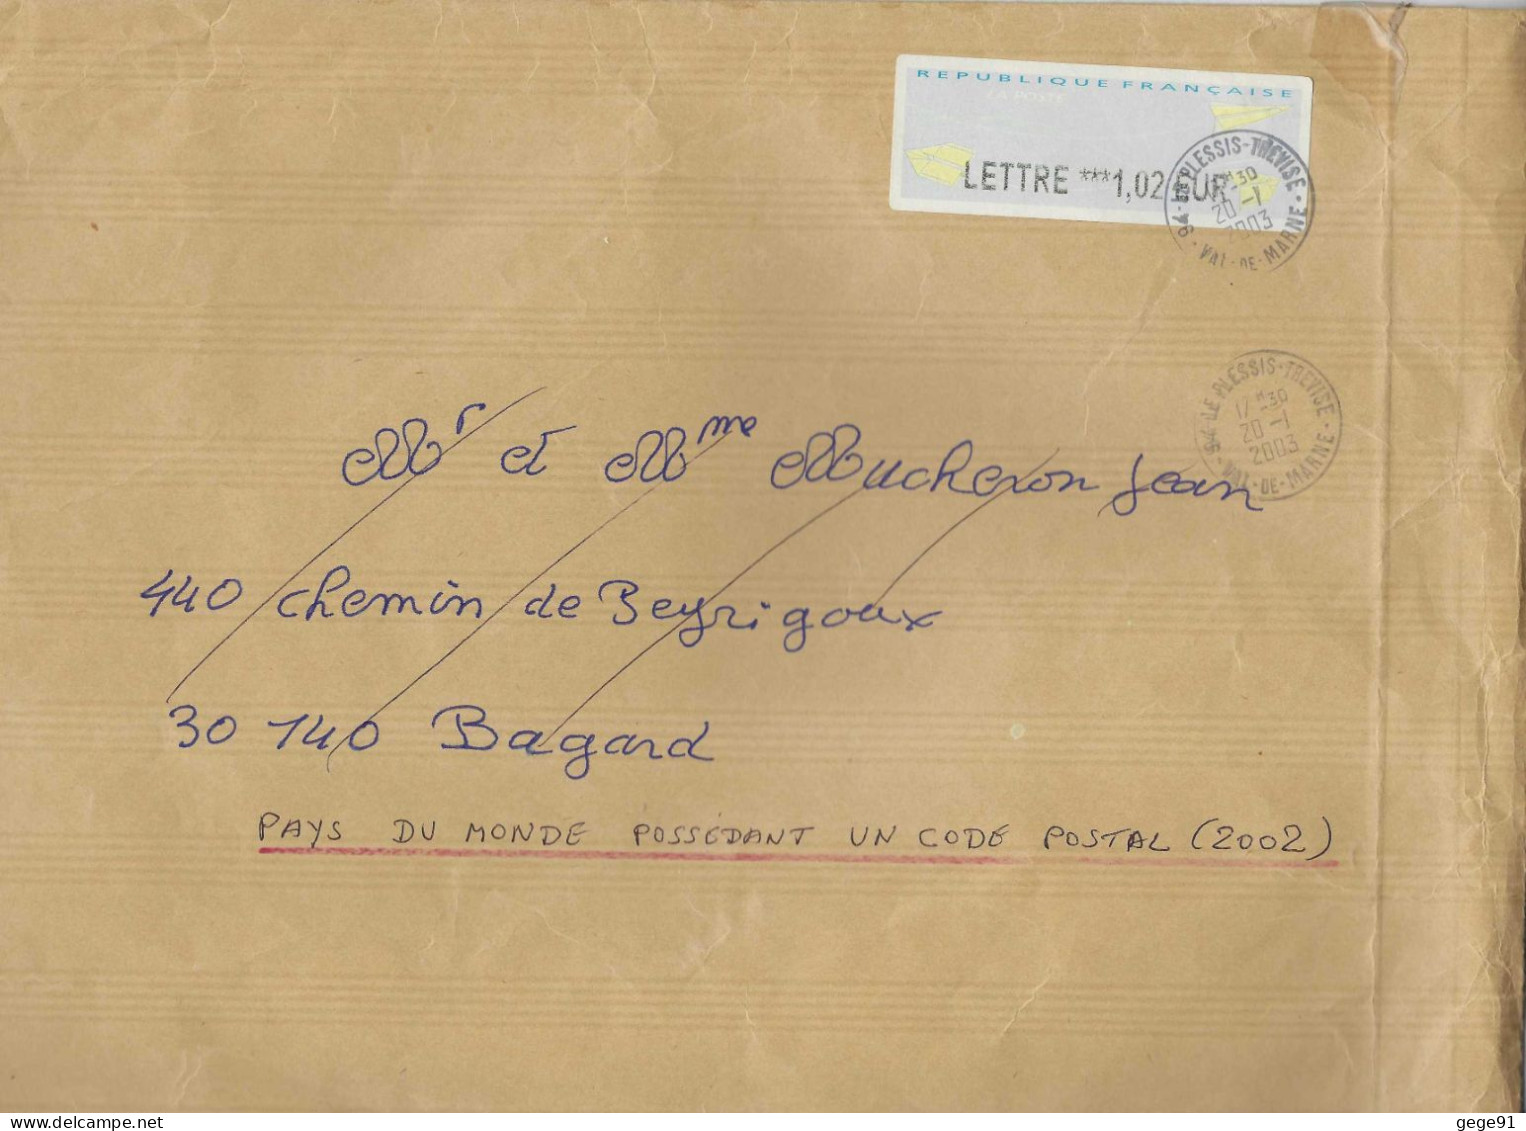 REPUBLIQUE FRANÇAISE
LA POSTE
LETTRE ***1,02 EUR
94 - LE PLESSIS-TREVISE - VAL-DE-MARNE
20 -1
2003
94 - LE PLESSIS-TREVISE - VAL-DE-MARNE
17H30
20 -1
2003
Mr et Mme Mucheron Jean
440 chemin de Beyrigoux
30 140 Bagard
PAYS DU MONDE POSSÉDANT UN CODE POSTAL (2002)
delcampe.net
gege91